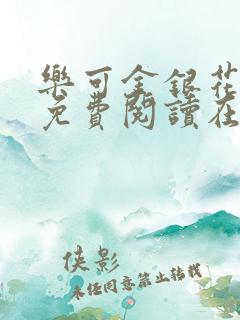 樂可金銀花
免費閱讀在
俠影
未經同意禁止轉載